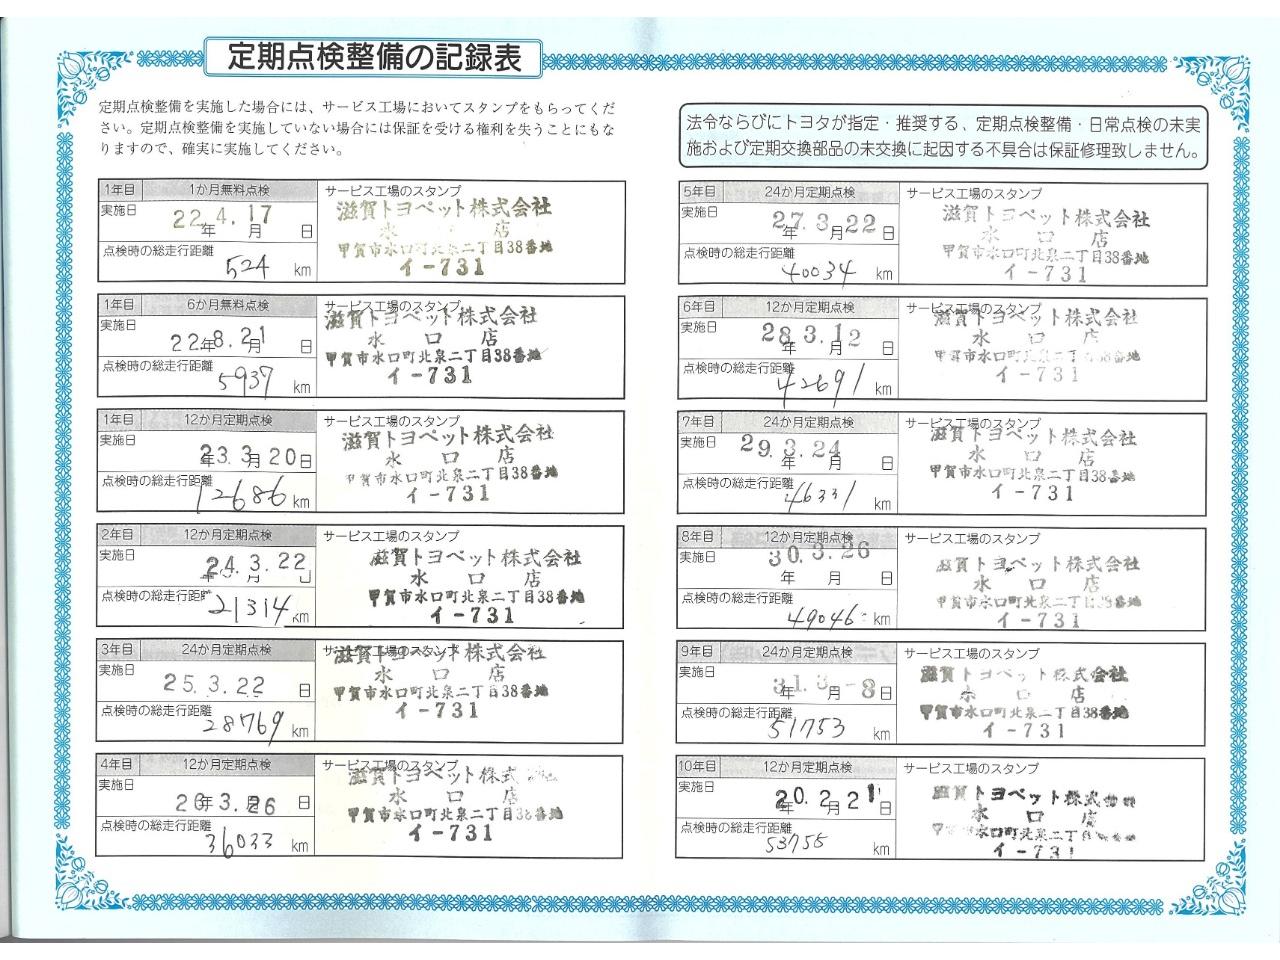 定期点検整備の記録表
定期点検整備を実施した場合には、サービス工場においてスタンプをもらってくだ
さい。定期点検整備を実施していない場合には保証を受ける権利を失うことにもな
りますので、確実に実施してください。
1年目 1か月無料点検 サービス工場のスタンプ
実施日 22.4.17 年 月 日
滋賀トヨペット株式会社
水口店
点検時の総走行距離 524 km
甲賀市水口町北泉二丁目38番地
イ-731
1年目 6か月無料点検 サービス工場のスタンプ
実施日 22.8.21 年 月 日
滋賀トヨペット株式会社
水口店
点検時の総走行距離 5937 km
甲賀市水口町北泉二丁目38番地
イ-731
1年目 12か月定期点検 サービス工場のスタンプ
実施日 23.3.20 年 月 日
滋賀トヨペット株式会社
水口店
点検時の総走行距離 12686 km
甲賀市水口町北泉二丁目38番地
イ-731
2年目 12か月定期点検 サービス工場のスタンプ
実施日 24.3.22 年 月 日
滋賀トヨペット株式会社
水口店
点検時の総走行距離 21314 km
甲賀市水口町北泉二丁目38番地
イ-731
3年目 24か月定期点検 サービス工場のスタンプ
実施日 25.3.22 日
滋賀トヨペット株式会社
水口店
点検時の総走行距離 28769 km
甲賀市水口町北泉二丁目38番地
イ-731
4年目 12か月定期点検 サービス工場のスタンプ
実施日 26.3.26 年 月 日
滋賀トヨペット株式
水口店
点検時の総走行距離 36033 km
甲賀市水口町北泉二丁目38番地
イ-731
法令ならびにトヨタが指定・推奨する、定期点検整備・日常点検の未実
施および定期交換部品の未交換に起因する不具合は保証修理致しません。
5年目 24か月定期点検 サービス工場のスタンプ
実施日 27.3.22 年 月 日
滋賀トヨペット株式会社
水口店
点検時の総走行距離 40034 km
甲賀市水口町北泉二丁目38番地
イ-731
6年目 12か月定期点検 サービス工場のスタンプ
実施日 28.3.12 年 月 日
滋賀トヨペット株式会社
水口店
点検時の総走行距離 42691 km
甲賀市水口町北泉二丁目38番地
イ-731
7年目 24か月定期点検 サービス工場のスタンプ
実施日 29.3.24 年 月 日
滋賀トヨペット株式会社
水口店
点検時の総走行距離 46331 km
甲賀市水口町北泉二丁目38番地
イ-731
8年目 12か月定期点検 サービス工場のスタンプ
実施日 30.3.26 年 月 日
滋賀トヨペット株式会社
水口店
点検時の総走行距離 49046 km
甲賀市水口町北泉二丁目38番地
イ-731
9年目 24か月定期点検 サービス工場のスタンプ
実施日 31.3.-8 年 月 日
滋賀トヨペット株式会社
水口店
点検時の総走行距離 51753 km
甲賀市水口町北泉二丁目38番地
イ-731
10年目 12か月定期点検 サービス工場のスタンプ
実施日 20.2.21 年 月 日
滋賀トヨペット株式
水口店
点検時の総走行距離 53755 km
水口町北泉二丁目
イ-731